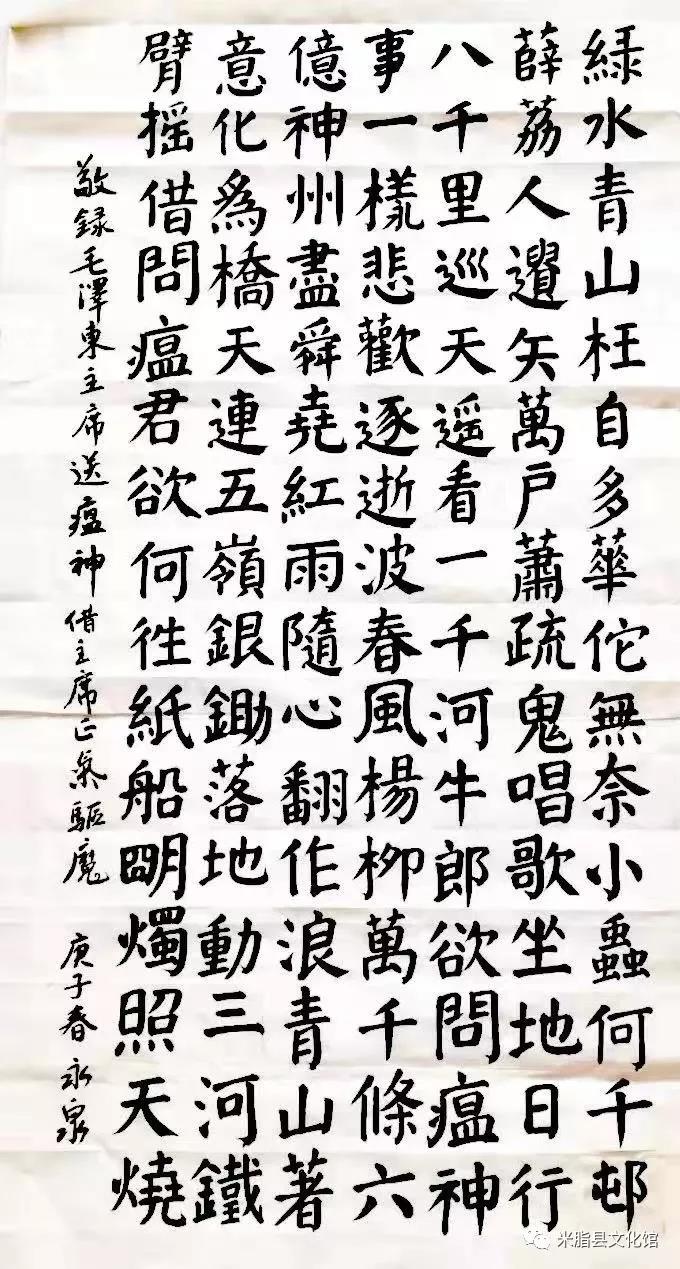 綠水青山枉自多華佗無奈小蟲何千邨
薛荔人遺矢萬戶蕭疏鬼唱歌坐地日行
八千里巡天遥看一千河牛郎欲問瘟神
事一樣悲歡逐逝波春風楊柳萬千條六
億神州盡舜堯紅雨隨心翻作浪青山著
意化爲橋天連五嶺銀鋤落地動三河鐵
臂摇借問瘟君欲何往紙船明燭照天燒
敬録毛澤東主席送瘟神借主席正氣驅魔 庚子春永泉
米脂县文化馆